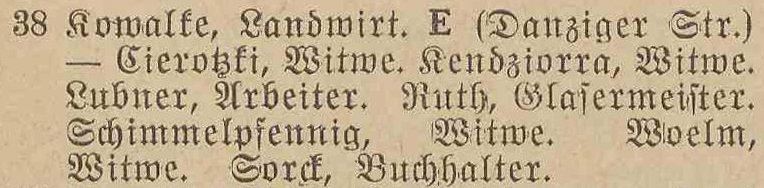 38 Kowalke, Landwirt. E (Danziger Str.)
— Cierotzki, Witwe. Kendziorra, Witwe.
Lubner, Arbeiter. Ruth, Glasermeister.
Schimmelpfennig, Witwe. Woelm,
Witwe. Sorck, Buchhalter.